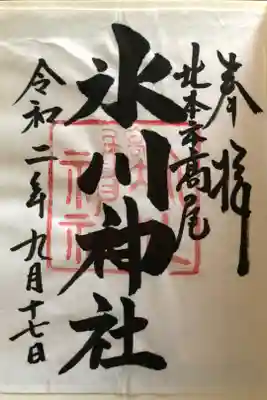 奉拝
北本市高尾
氷川神社
令和二年九月十七日